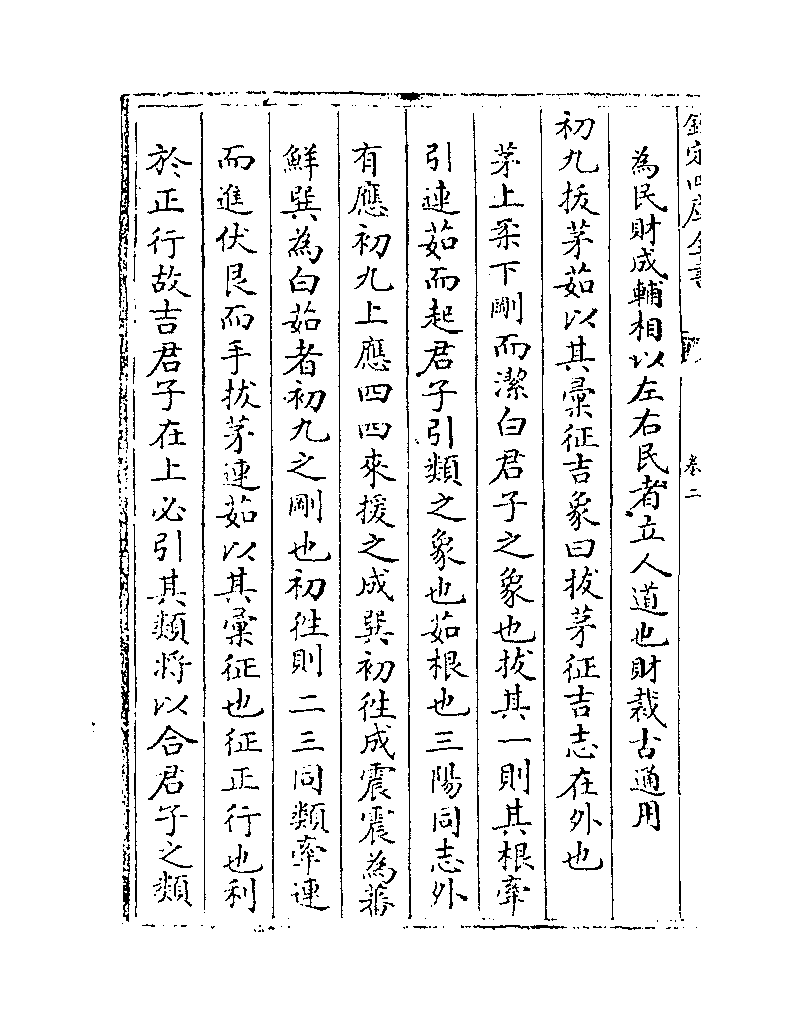 欽定四庫全書 卷二
為民財成輔相以左右民者立人道也財裁古通用
初九拔茅茹以其彚征吉象曰拔茅征吉志在外也
茅上柔下剛而潔白君子之象也拔其一則其根牽
引連茹而起君子引類之象也茹根也三陽同志外
有應初九上應四四來援之成巽初徃成震震為蕃
鮮巽為白茹者初九之剛也初徃則二三同類牽連
而進伏艮而手拔茅連茹以其彚征也征正行也利
於正行故吉君子在上必引其類將以合君子之類